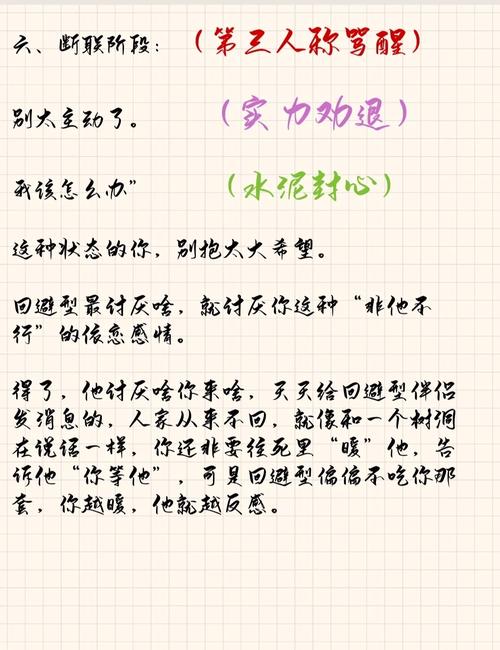 六、断联阶段：（第三人称骂醒）
别太主动了。（实力劝退）
我该怎么办”（水泥封心）
这种状态的你，别抱太大希望。
回避型最讨厌啥，就讨厌你这种“非他不
行”的依恋感情。
得了，他讨厌啥你来啥，天天给回避型伴侣
发消息的，人家从来不回，就像和一个树洞
在说话一样，你还非要往死里“暖”他，告
诉他“你等他”，可是回避型偏偏不吃你那
套，你越暖，他就越反感。